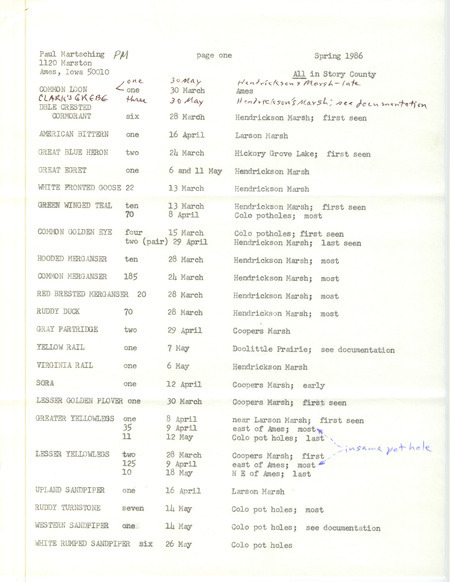 Paul Martsching PM page one Spring 1986
1120 Marston
Ames, Iowa 50010 All in Story County
one 30 May Hendrickson's Marsh - late
COMMON LOON one 30 March Ames
CLARK'S GREBE three 30 May Hendrickson's Marsh; see documentation
DBLE CRESTED
CORMORANT six 28 March Hendrickson Marsh; first seen
AMERICAN BITTERN one 16 April Larson Marsh
GREAT BLUE HERON two 24 March Hickory Grove Lake; first seen
GREAT EGRET one 6 and 11 May Hendrickson Marsh
WHITE FRONTED GOOSE 22 13 March Hendrickson Marsh
GREEN WINGED TEAL ten 13 March Hendrickson Marsh; first seen
70 8 April Colo potholes; most
COMMON GOLDEN EYE four 15 March Colo potholes; first seen
two (pair) 29 April Hendrickson Marsh; last seen
HOODED MERGANSER ten 28 March Hendrickson Marsh; most
COMMON MERGANSER 185 24 March Hendrickson Marsh; most
RED BRESTED MERGANSER 20 28 March Hendrickson Marsh; most
RUDDY DUCK 70 28 March Hendrickson Marsh; most
GRAY PARTRIDGE two 29 April Coopers Marsh
YELLOW RAIL one 7 May Doolittle Prairie; see documentation
VIRGINIA RAIL one 6 May Hendrickson Marsh
SORA one 12 April Coopers Marsh; early
LESSER GOLDEN PLOVER one 30 March Coopers Marsh; first seen
GREATER YELLOWLEGS one 8 April near Larson Marsh; first seen
35 9 April east of Ames; most
11 12 May Colo pot holes; last
in same pot hole
LESSER YELLOWLEGS two 28 March Coopers Marsh; first
125 9 April east of Ames; most
10 18 May N E of Ames; last
UPLAND SANDPIPER one 16 April Larson Marsh
RUDDY TURNSTONE seven 14 May Colo pot holes; most
WESTERN SANDPIPER one 14 May Colo pot holes; see documentation
WHITE RUMPED SANDPIPER six 26 May Colo pot holes